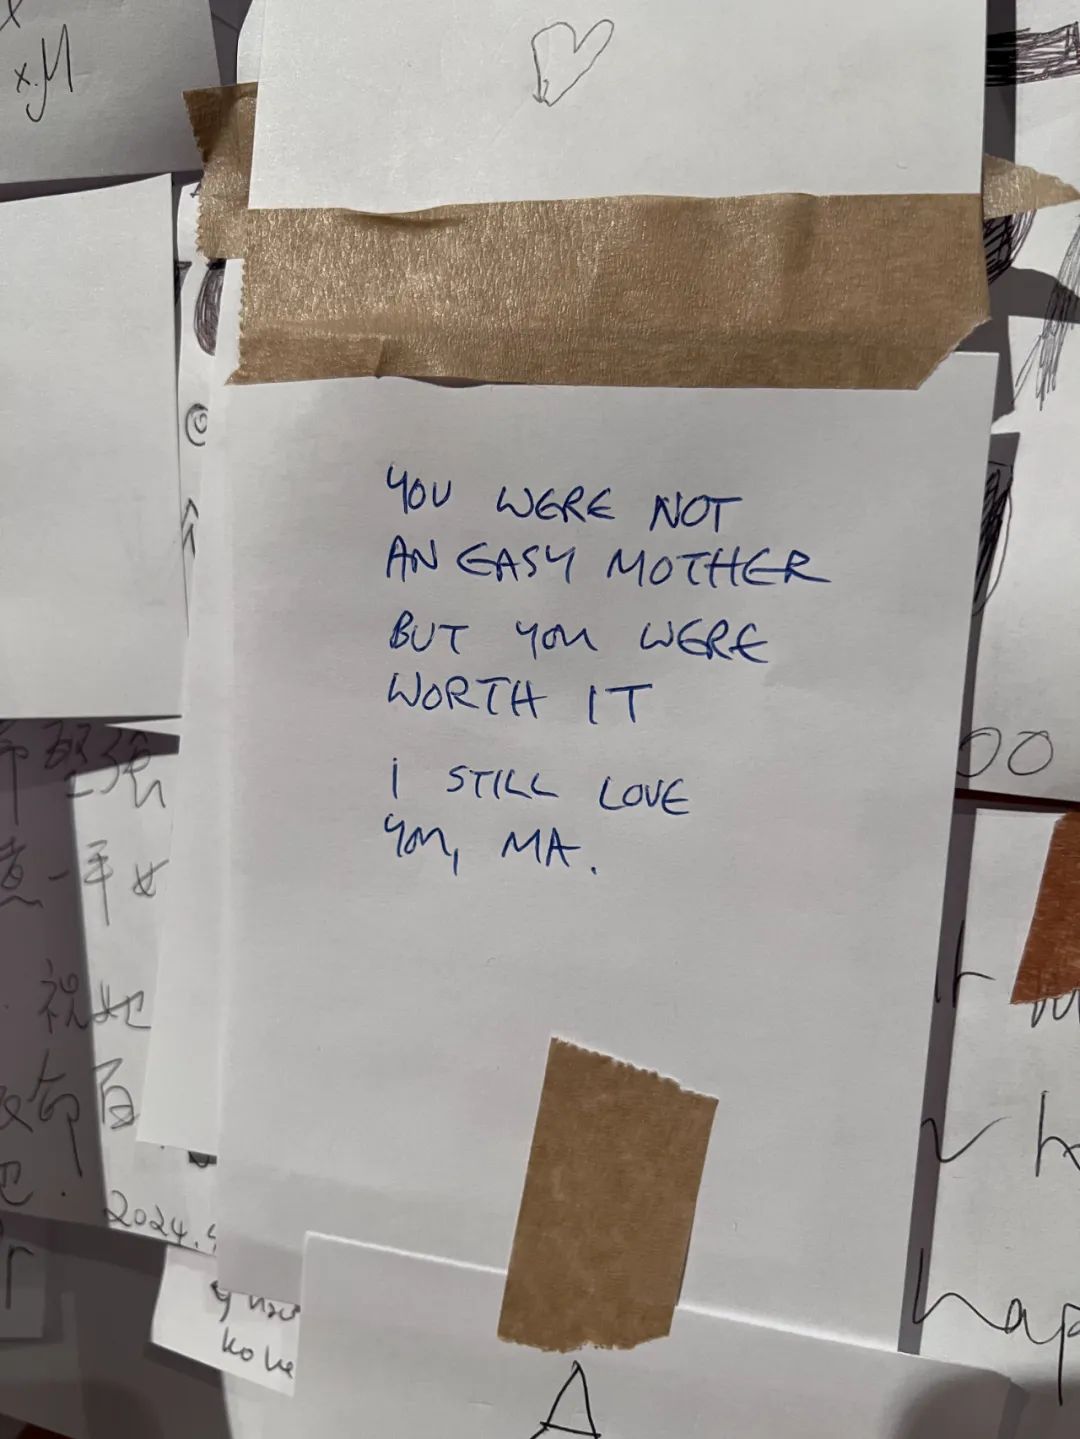 x.M
YOU WERE NOT
AN EASY MOTHER
BUT YOU WERE
WORTH IT
I STILL LOVE
YOU, MA.
OO
一 手 女
祝她
百
2024.
hap
A